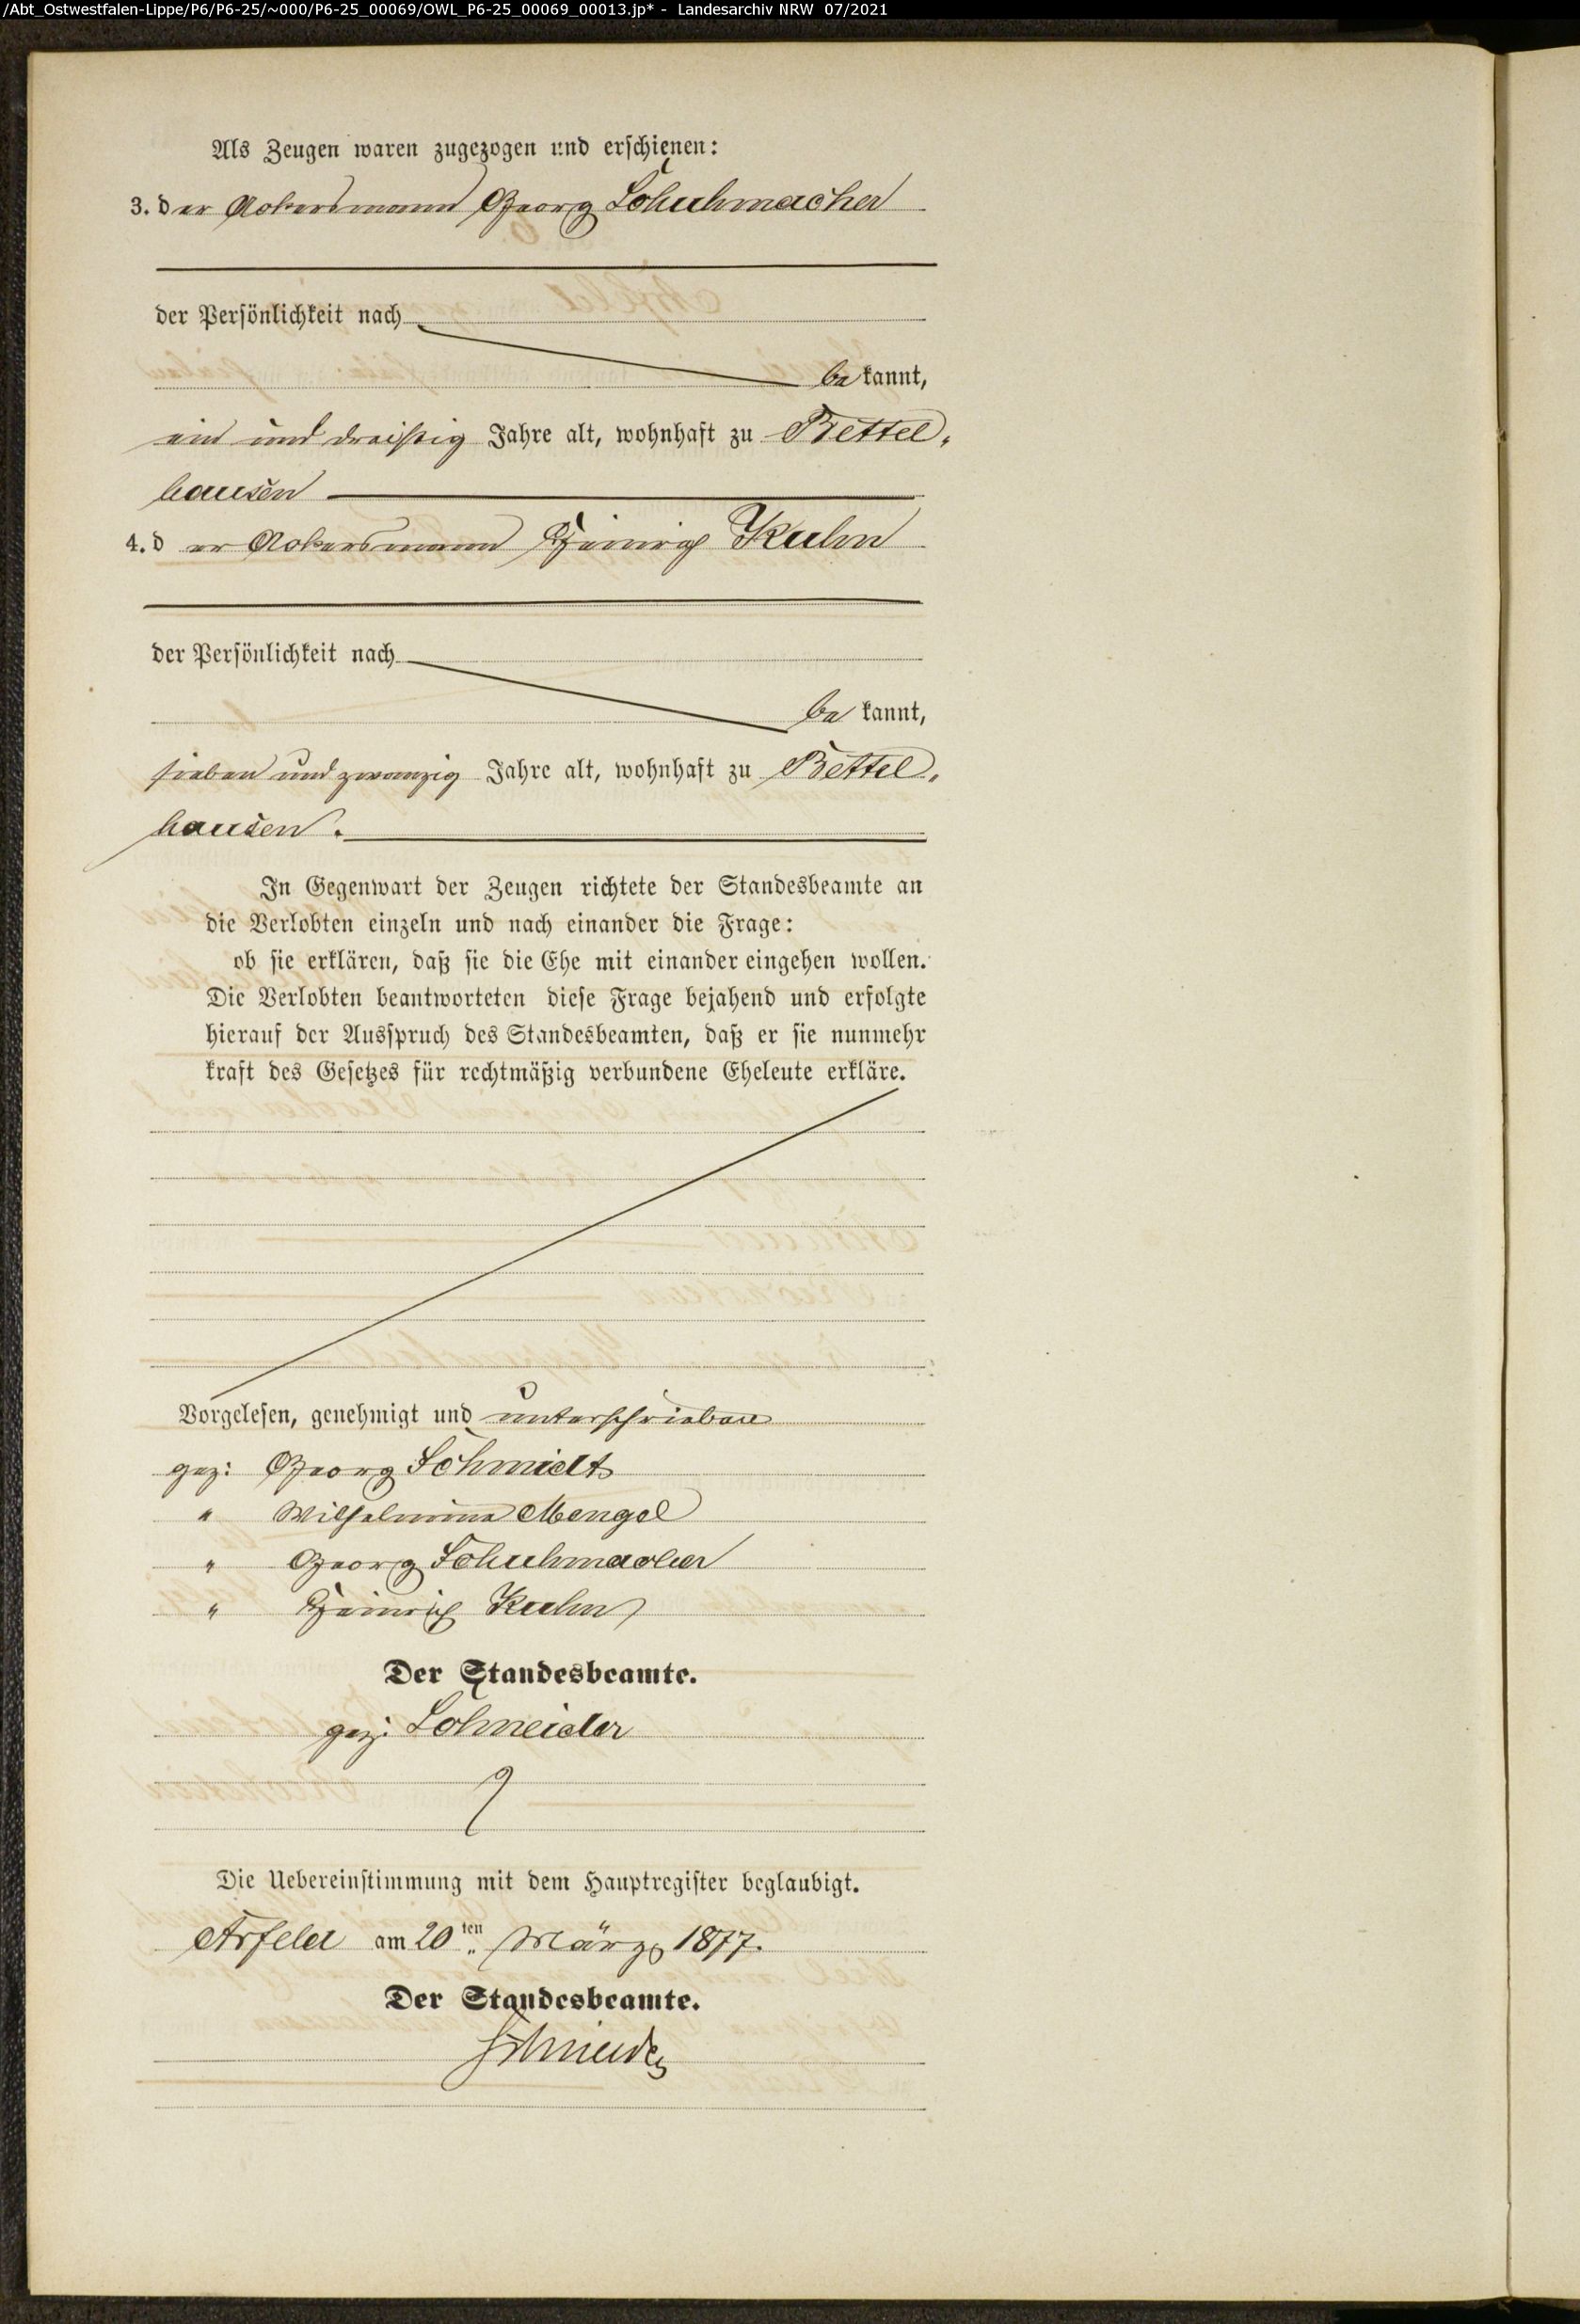 /Abt_Ostwestfalen-Lippe/P6/P6-25/~000/P6-25_00069/OWL_P6-25_00069_00013.jp* - Landesarchiv NRW 07/2021
Als Zeugen waren zugezogen und erschienen:
3. der Ackersmann Georg Schuhmacher
der Persönlichkeit nach
be kannt,
ein und dreißig Jahre alt, wohnhaft zu Bettel-
hausen
4. d er Ackersmann Heinrich Kuhn
der Persönlichkeit nach
be kannt,
sieben und zwanzig Jahre alt, wohnhaft zu Bettel-
hausen.
In Gegenwart der Zeugen richtete der Standesbeamte an
die Verlobten einzeln und nach einander die Frage:
ob sie erklären, daß sie die Ehe mit einander eingehen wollen.
Die Verlobten beantworteten diese Frage bejahend und erfolgte
hierauf der Ausspruch des Standesbeamten, daß er sie nunmehr
kraft des Gesetzes für rechtmäßig verbundene Eheleute erkläre.
Vorgelesen, genehmigt und unterschrieben
gez: Georg Schmidt
" Wilhelmine Mengel
" Georg Schuhmacher
" Heinrich Kuhn
Der Standesbeamte.
gez: Schneider
Die Uebereinstimmung mit dem Hauptregister beglaubigt.
Arfeld am 20ten März 1877.
Der Standesbeamte.
Schneider